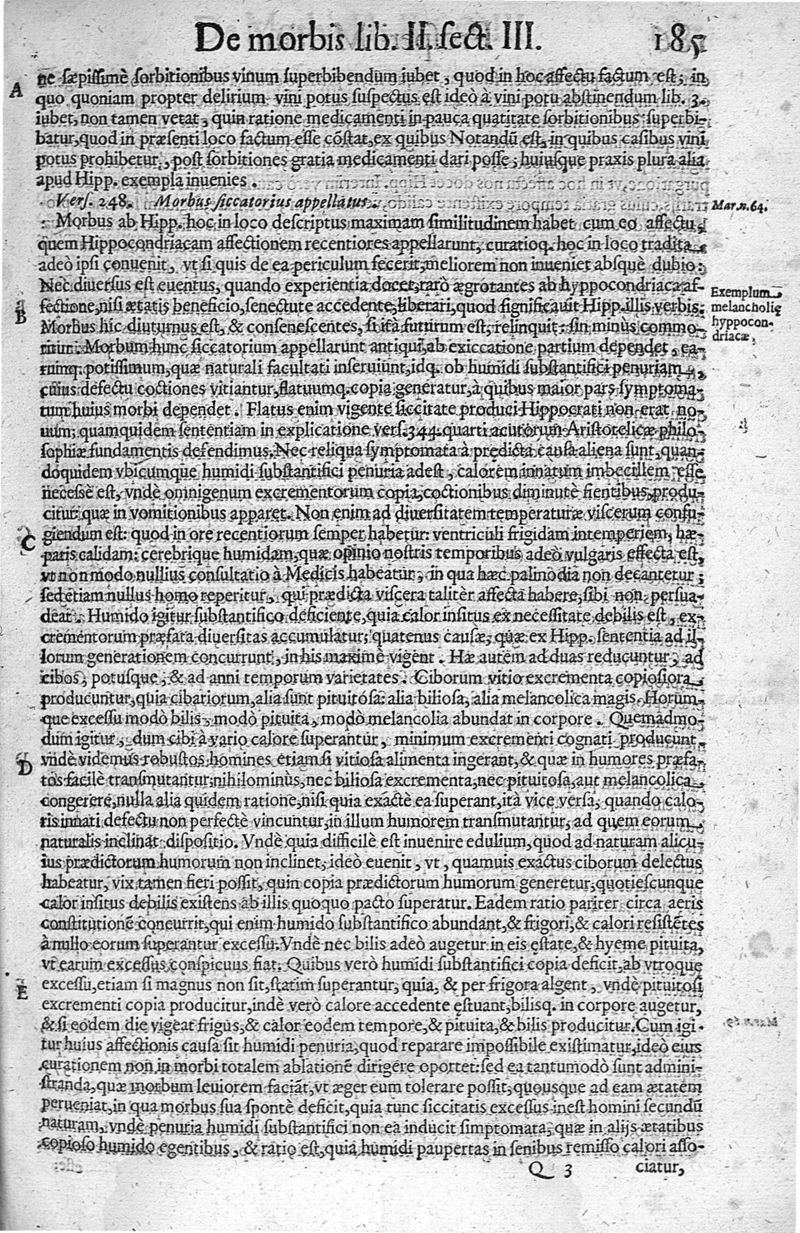 De morbis lib. II. sect. III. 185
A
ne sæpissimè sorbitionibus vinum superbibendum iubet, quod in hoc affectu factum est; in
quo quoniam propter delirium vini potus suspectus est ideò à vini potu abstinendum lib. 3.
iubet, non tamen vetat, quin ratione medicamenti in pauca quãtitate sorbitionibus superbi-
batur, quod in præsenti loco factum esse cõstat, ex quibus Notandũ est, in quibus casibus vini
potus prohibetur, post sorbitiones gratia medicamenti dari posse; huiusque praxis plura alia
apud Hipp. exempla inuenies.
Vers. 248. Morbus siccatorius appellatus.
Mar. n. 64.
Morbus ab Hipp. hoc in loco descriptus maximam similitudinem habet cum eo affectu,
quem Hippocondriacam affectionem recentiores appellarunt, curatioq. hoc in loco tradita
adeò ipsi conuenit, vt si quis de ea periculum fecerit, meliorem non inueniet absquè dubio.
Nec diuersus est euentus, quando experientia docet, rarò ægrotantes ab hyppocondriaca af-
Exemplum
melancholię
hyppocon-
driacæ,
B
fectione, nisi ætatis beneficio, senectute accedente, liberari, quod significauit Hipp. illis verbis:
Morbus hic diuturnus est, & consenescentes, si ità futurum est, relinquit: sin minus commo-
ritur. Morbum hunc siccatorium appellarunt antiqui, ab exiccatione partium dependet, ea-
rumq. potissimum, quæ naturali facultati inseruiunt, idq. ob humidi substantifici penuriam,
cuius defectu coctiones vitiantur, flatuumq. copia generatur, à quibus maior pars symptoma-
tum huius morbi dependet. Flatus enim vigente siccitate produci Hippocrati non erat no-
uum; quamquidem sententiam in explicatione vers. 344. quarti acutorum Aristotelicæ philo-
sophiæ fundamentis defendimus. Nec reliqua symptomata à prędicta causa aliena sunt, quan-
doquidem vbicumque humidi substantifici penuria adest, calorem innatum imbecillem esse
necesse est, vndè omnigenum excrementorum copia, coctionibus diminutè fientibus, produ-
citur: quæ in vomitionibus apparet. Non enim ad diuersitatem temperaturæ viscerum confu-
C
giendum est: quod in ore recentiorum semper habetur: ventriculi frigidam intemperiem, hæ-
patis calidam: cerebrique humidam; quæ opinio nostris temporibus adeò vulgaris effecta est,
vt non modo nullius consultatio à Medicis habeatur; in qua hæc palinodia non decantetur;
sed etiam nullus homo reperitur, qui prædicta viscera talitèr affecta habere, sibi non persua-
deat. Humido igitur substantifico deficiente, quia calor insitus ex necessitate debilis est, ex-
crementorum præfata diuersitas accumulatur; quatenus causæ, quæ ex Hipp. sententia ad il-
lorum generationem concurrunt, in his maximè vigent. Hæ autem ad duas reducuntur; ad
cibos, potusque; & ad anni temporum varietates. Ciborum vitio excrementa copiosiora
producuntur, quia cibariorum, alia sunt pituitosa: alia biliosa, alia melancolica magis. Horum-
que excessu modò bilis, modò pituita, modò melancolia abundat in corpore. Quemadmo-
dum igitur, dum cibi à vario calore superantur, minimum excrementi cognati producunt,
D
vndè videmus robustos homines etiam si vitiosa alimenta ingerant, & quæ in humores præfa-
tos facilè transmutantur: nihilominùs, nec biliosa excrementa, nec pituitosa, aut melancolica
congerere, nulla alia quidem ratione, nisi quia exactè ea superant, ità vice versa, quando calo-
ris innati defectu non perfectè vincuntur, in illum humorem transmutantur, ad quem eorum
naturalis inclinat dispositio. Vndè quia difficilè est inuenire edulium, quod ad naturam alicu-
ius prædictorum humorum non inclinet; ideò euenit, vt, quamuis exactus ciborum delectus
habeatur, vix tamen fieri possit, quin copia prædictorum humorum generetur, quotiescunque
calor insitus debilis existens ab illis quoquo pacto superatur. Eadem ratio paritèr circa aeris
constitutionẽ concurrit, qui enim humido substantifico abundant, & frigori, & calori resistẽtes
à nullo eorum superantur excessu. Vndè nec bilis adeò augetur in eis estate, & hyeme pituita,
vt earum excessus conspicuus fiat. Quibus verò humidi substantifici copia deficit, ab vtroque
E
excessu, etiam si magnus non sit, statim superantur, quia, & per frigora algent, vndè pituitosi
excrementi copia producitur, indè verò calore accedente ęstuant, bilisq. in corpore augetur,
& si eodem die vigeat frigus, & calor eodem tempore, & pituita, & bilis producitur. Cum igi-
tur huius affectionis causa sit humidi penuria, quod reparare impossibile existimatur, ideò eius
curationem non in morbi totalem ablationẽ dirigere oportet: sed ea tantumodò sunt admini-
stranda, quæ morbum leuiorem faciãt, vt æger eum tolerare possit; quousque ad eam ætatem
perueniat, in qua morbus sua spontè deficit, quia tunc siccitatis excessus inest homini secundũ
naturam, vndè penuria humidi substantifici non ea inducit simptomata, quæ in alijs ætatibus
copioso humido egentibus, & ratio est, quia humidi paupertas in senibus remisso calori asso-
Q 3 ciatur,